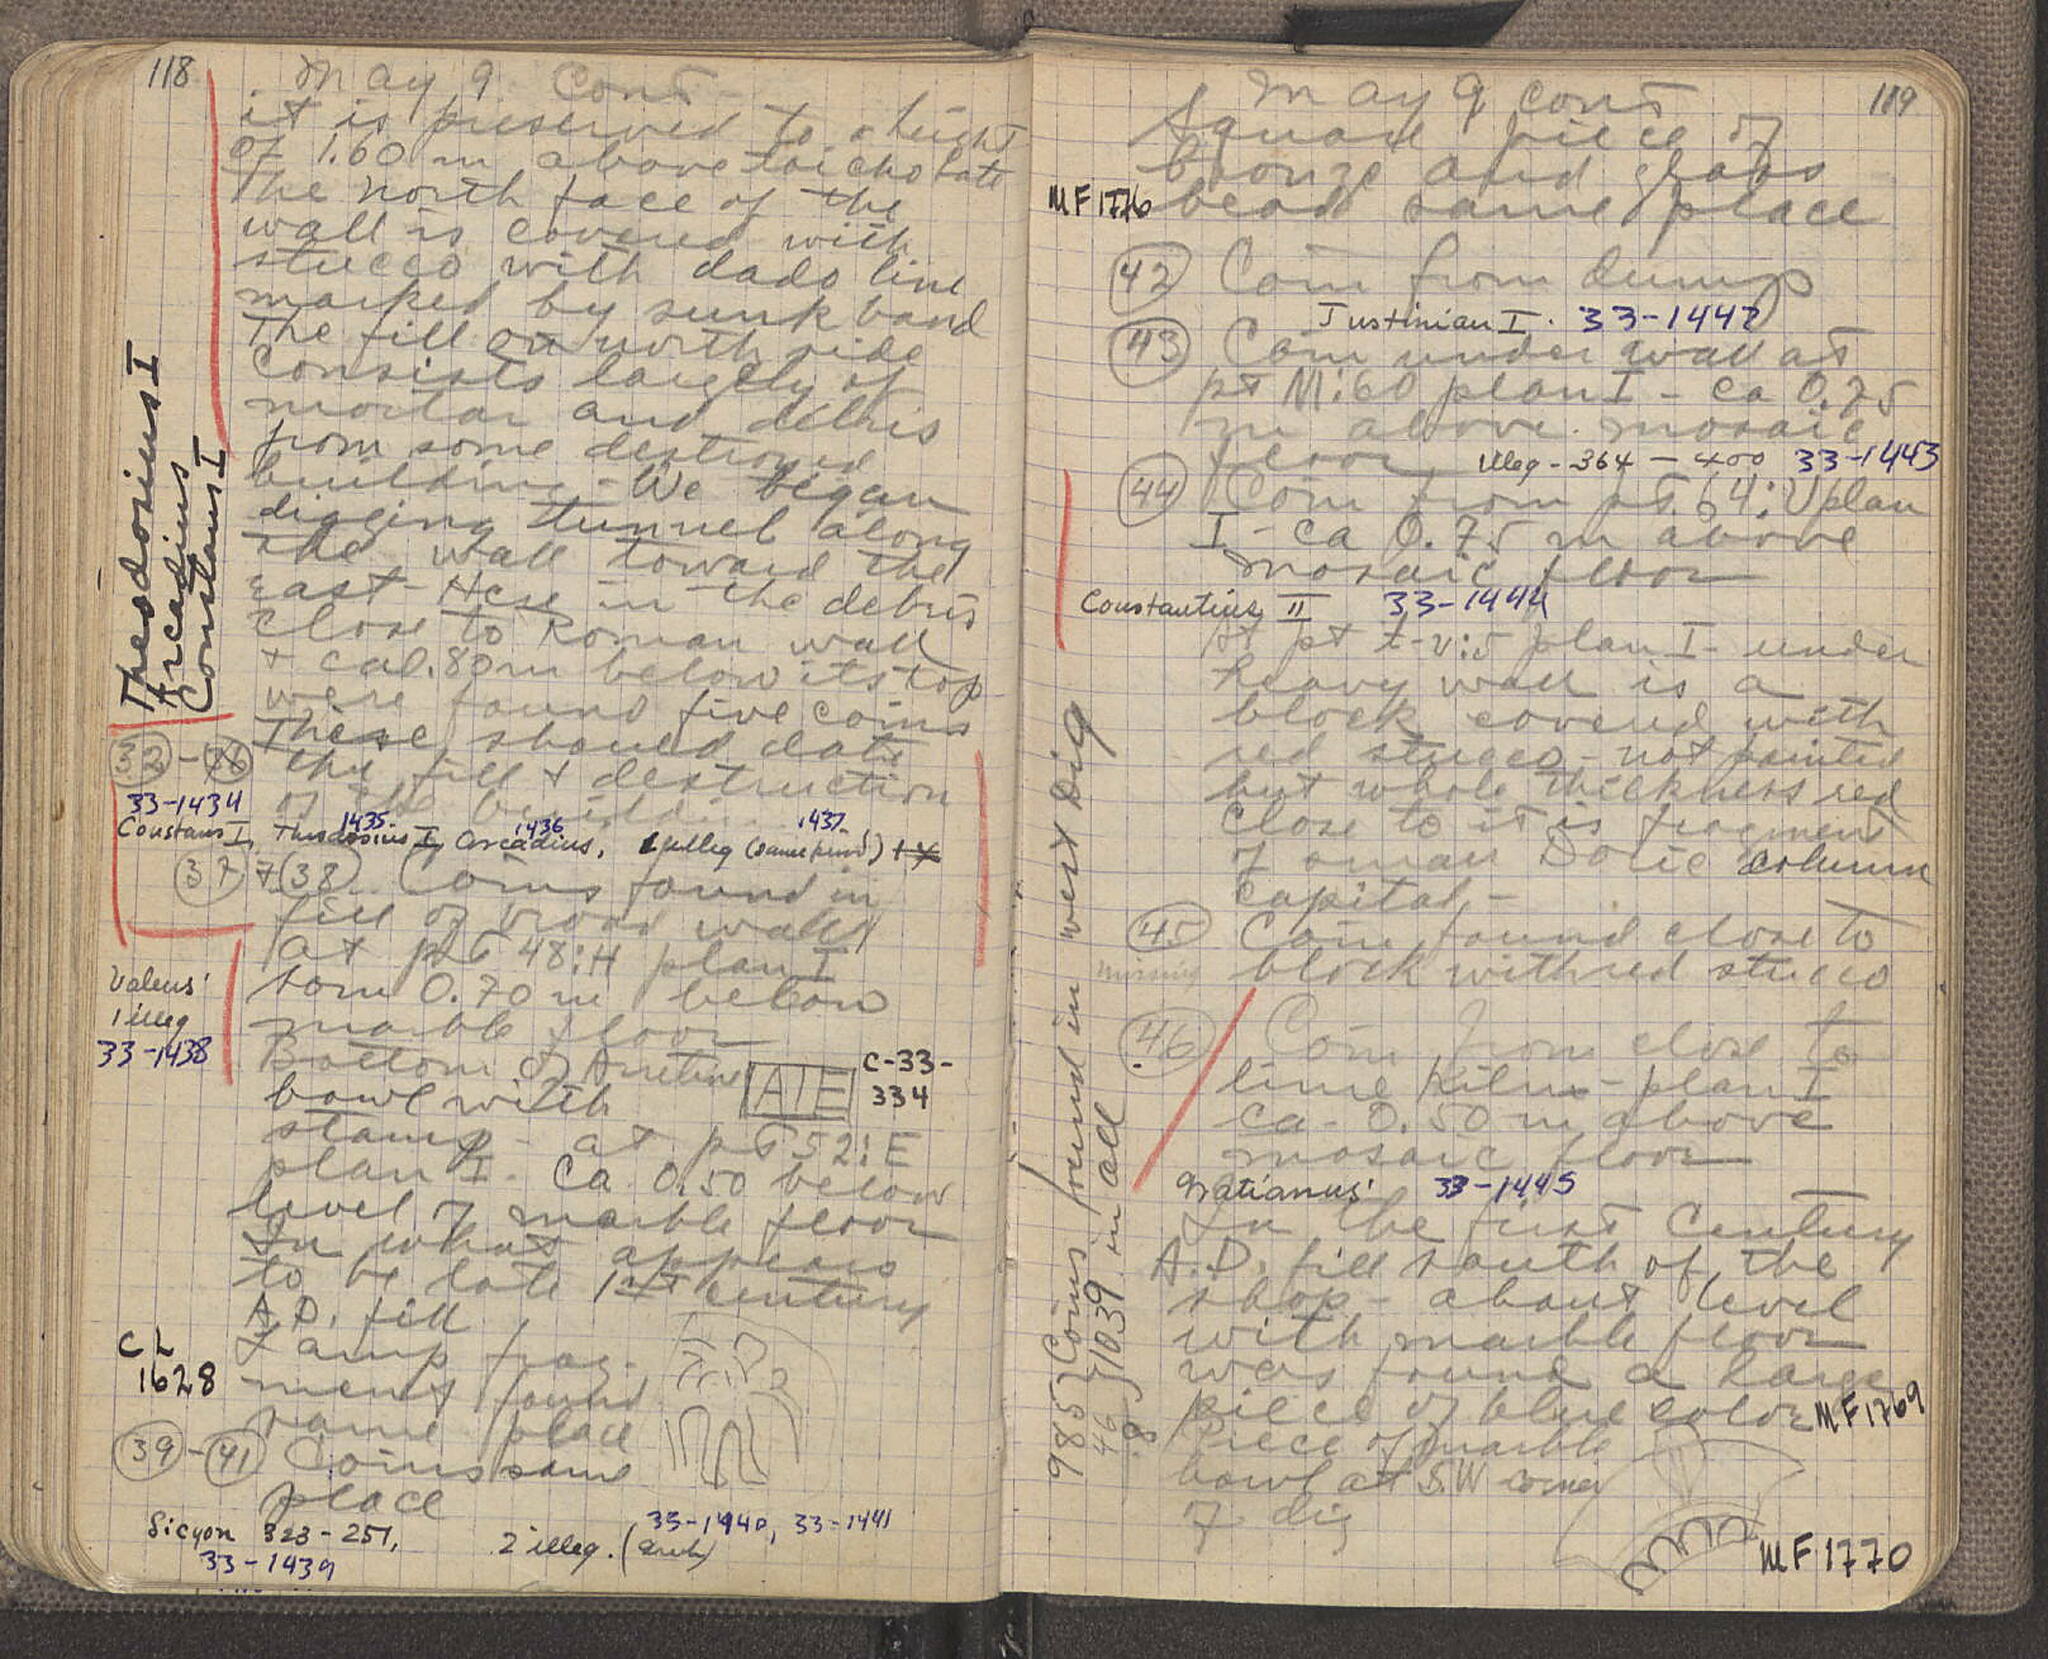 118
May 9 Cont
it is preserved to a height
of 1.60 m above toichobate
The north face of the
wall is covered with
stucco with dado line
marked by sunk band
The fill on north side
consists largely of
mortar and debris
from some destroyed
building - We began
digging tunnel along
the wall toward the
east - Here in the debris
close to Roman wall
+ ca 1.80 m below its top
were found five coins
These should date
the fill + destruction
of the building
Theodosius I
Arcadius
Constans I
32 - 36
33-1434 1435 1436 1437
Constans I, Theodosius I, Arcadius, 1 illeg (same period) +
37 + 38 Coins found in
fill of broad wall
at pt 48:H plan I
som 0.70 m below
marble floor
Valens'
1 illeg
33-1438
Bottom of Arretine
bowl with
ATE
C-33-
334
stamp - at pt 52:E
plan I. Ca 0.50 below
level of marble floor
In what appears
to be late 1st century
A.D. fill
CL
1628
Lamp frag-
ment found
same place
39 - 41 Coins same
place
Sicyon 323-251, 2 illeg. (Greek) 33-1440, 33-1441
33-1439
119
May 9 cont
Square piece of
bronze and glass
MF 1776 bead same place
42 Coin from dump
Justinian I. 33-1442
43 Coin under wall at
pt M:60 plan I - ca 0.75
m above mosaic
floor illeg - 364 - 400 33-1443
44 Coin from pt 64:U plan
I - ca 0.75 m above
mosaic floor
Constantius II 33-1444
At pt t-v:5 plan I - under
heavy wall is a
block covered with
red stucco - not painted
but whole thickness red
Close to it is fragment
of small Doric column
capital, -
45 Coin found close to
missing block with red stucco
46 Coin from close to
lime kiln - plan I
ca. 0.50 m above
mosaic floor
Gratianus' 33-1445
In the first century
A.D. fill south of the
shop - about level
with marble floor
was found a large
piece of blue color MF 1769
Piece of marble
bowl at S.W corner
of dig
MF 1770
985 Coins found in west Dig
46
8
1039 in all